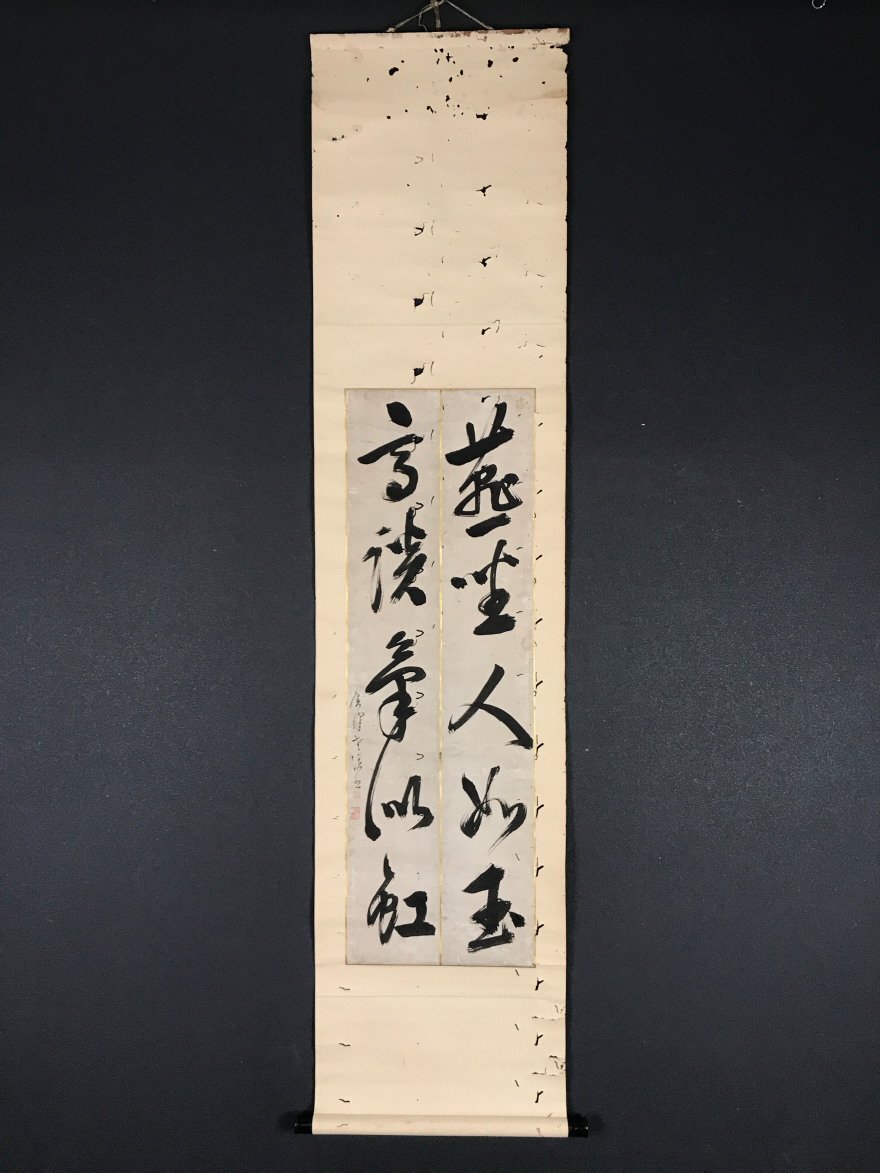 燕坐人如玉
高談氣似虹